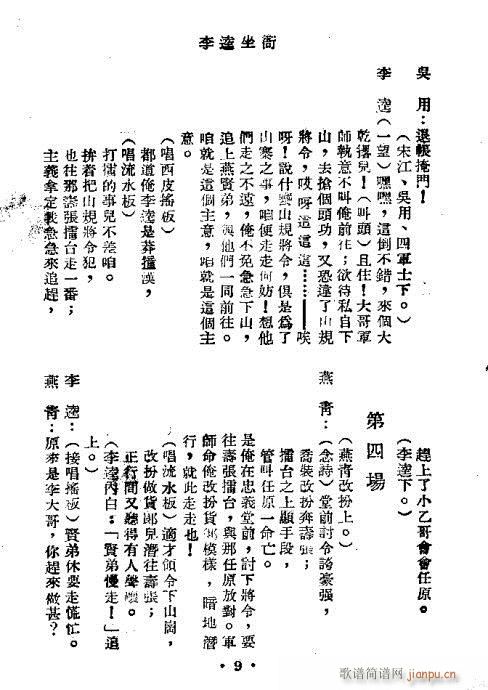 李逵坐衙
吳　用：退帳掩門！
（宋江、吳用、四軍士下。）
李　逵（一望）嘿嘿，這倒不錯，來個大
乾撂兒！（叫頭）且住！大哥軍
師執意不叫俺前往；欲待私自下
山，去搶個頭功，又恐違了山規
將令，哎呀這這這⋯⋯⋯⋯唉
呀！說什麼山規將令，俱是為了
山寨之事，咱便走走何妨！想他
們走之不遠，俺不免急急下山，
追上燕賢弟，與他們一同前往。
咱就是這個主意，咱就是這個主
意。
（唱西皮搖板）
都道俺李逵是莽撞漢，
（唱流水板）
打擂的事兒不差咱。
拚着把山規將令犯，
也往那壽張擂台走一番；
主義拿定我急急來追趕，
趕上了小乙哥會會任原。
（李逵下。）
第四場
（燕青改扮上。）
燕　青：（念詩）堂前討令誇豪强，
喬裝改扮奔壽張；
擂台之上顯手段，
管叫任原一命亡。
是俺在忠義堂前，討下將令，要
往壽張擂台，與那任原放對。軍
師命俺改扮貨郎模樣，暗地潛
行，就此走走也！
（唱流水板）適才領令下山崗，
改扮做貨郎兒潛往壽張；
正行間又聽得有人聲嚷。
（李逵內白：「賢弟慢走！」追
上。）
李　逵：（接唱搖板）賢弟休要走慌忙。
燕　青：原來是李大哥，你趕來做甚？
• 9 •
歌谱简谱网
jianpu.cn